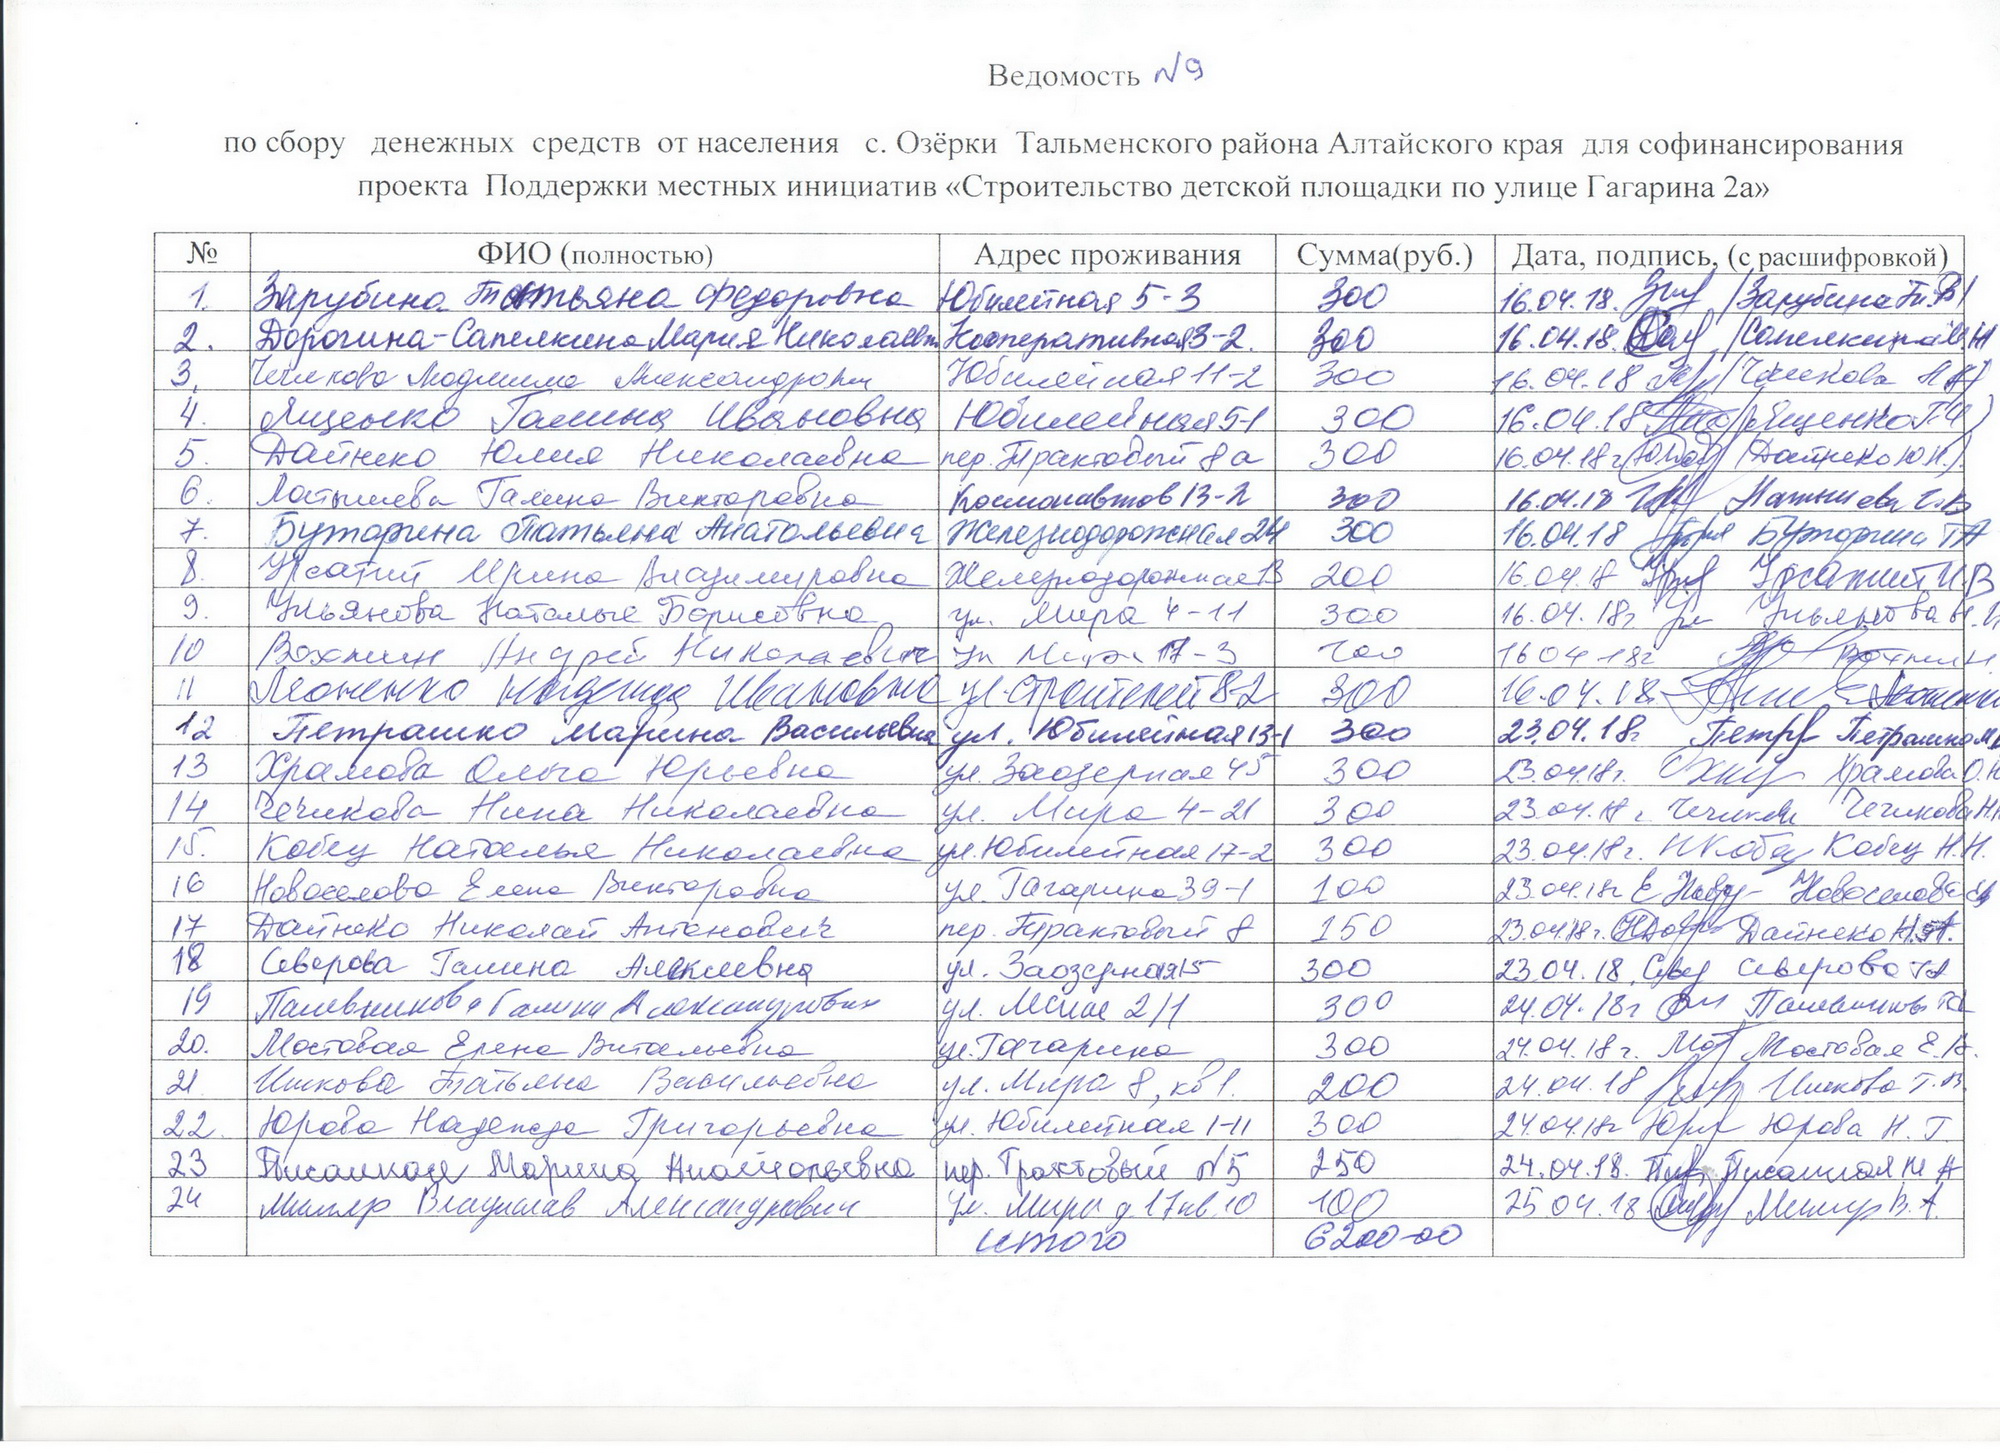 Ведомость №9
по сбору денежных средств от населения с. Озёрки Тальменского района Алтайского края для софинансирования
проекта Поддержки местных инициатив «Строительство детской площадки по улице Гагарина 2а»
№ ФИО (полностью) Адрес проживания Сумма(руб.) Дата, подпись, (с расшифровкой)
1. Зарубина Татьяна Федоровна Юбилейная 5-3 300 16.04.18. /Зарубина
2. Дорогина-Сапелкина Мария Николаевна Кооперативная 3-2. 300 16.04.18.
3. Людмила Александровна Юбилейная 11-2 300 16.04.18
4. Ященко Галина Ивановна Юбилейная 5-1 300 16.04.18 Ященко Г.И)
5. Дайнеко Юлия Николаевна пер. Трактовый 8а 300 16.04.18г (Дайнеко Ю Н.)
6. Латышева Галина Викторовна Космонавтов 13-2 300 16.04.18 Латышева Г.В
7. Буторина Татьяна Анатольевна Железнодорожная 24 300 16.04.18 Буторина ТА
8. Усатий Ирина Владимировна Железнодорожная 200 16.04.18 И.В
9. Ульянова Наталья Борисовна ул. Мира 4-11 300 16.04.18г Ульянова
10 Вохмин Андрей Николаевич ул Мира 17-3 16 04 18г
11 Леоненко Надежда Ивановна ул. Строителей 8-2 300 16.04.18.
12 Петрашко Марина Васильевна ул. Юбилейная 13-1 300 23.04.18г Петрашко
13 Храмова Ольга Юрьевна ул. Заозерная 45 300 23.04.18г. Храмова О.Ю
14 Чечикова Нина Николаевна ул. Мира 4-21 300 23.04.18г Чечикова Н.Н
15. Кобец Наталья Николаевна ул. Юбилейная 17-2 300 23.04.18г. Кобец Н.Н.
16 Новоселова Елена Викторовна ул. Гагарина 39-1 100 23.04.18г Новоселова
17 Дайнеко Николай Антонович пер. Трактовый 8 150 23.04.18г. Дайнеко Н.А.
18 Северова Галина Алексеевна ул. Заозерная 15 300 23.04.18. Северова ГА
19 Галина Александровна ул. 2/1 300 24.04.18г
20. Мостовая Елена Витальевна ул. Гагарина 300 24.04.18г. Мостовая Е.В.
21 Татьяна Васильевна ул. Мира 8, кв 1. 200 24.04.18 Т.В.
22. Юрова Надежда Григорьевна ул. Юбилейная 1-11 300 24.04.18г Юрова Н. Г.
23 Марина Анатольевна пер. Трактовый №5 250 24.04.18. М А
24 Миллер Владислав Александрович ул. Мира д 17 кв. 10 100 25.04.18 В.А.
Итого 6200-00